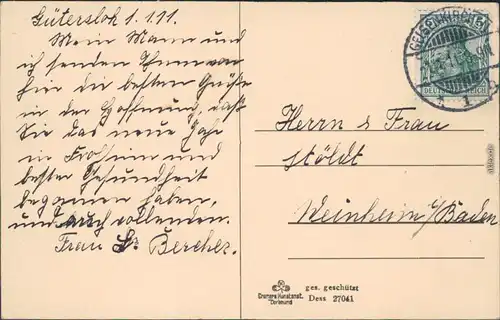 Gütersloh 1.1.11.
Mein Mann und
ich senden Ihnen von
hier die besten Grüße
in der Hoffnung, daß
Sie das neue Jahr
in Frohsinn und
bester Gesundheit
begonnen haben,
und auch vollenden.
Frau Dr Bercher.
GELSENKIRCHEN
DEUTSCHES REICH
Herrn & Frau
Stöldt
Weinheim i/Baden
Cramers Kunstanst.
Dortmund
ges. geschützt
Dess 27041